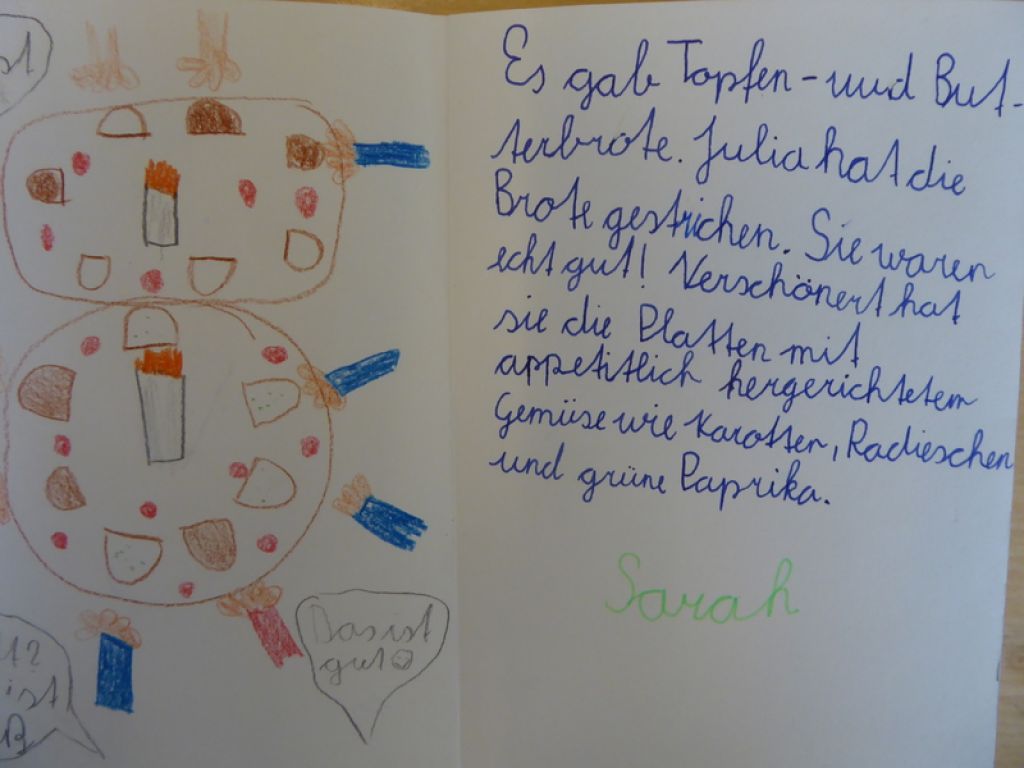 Es gab Topfen- und But-
terbrote. Julia hat die
Brote gestrichen. Sie waren
echt gut! Verschönert hat
sie die Platten mit
appetitlich hergerichtetem
Gemüse wie Karotten, Radieschen
und grüne Paprika.
Sarah
Das ist
gut
ist